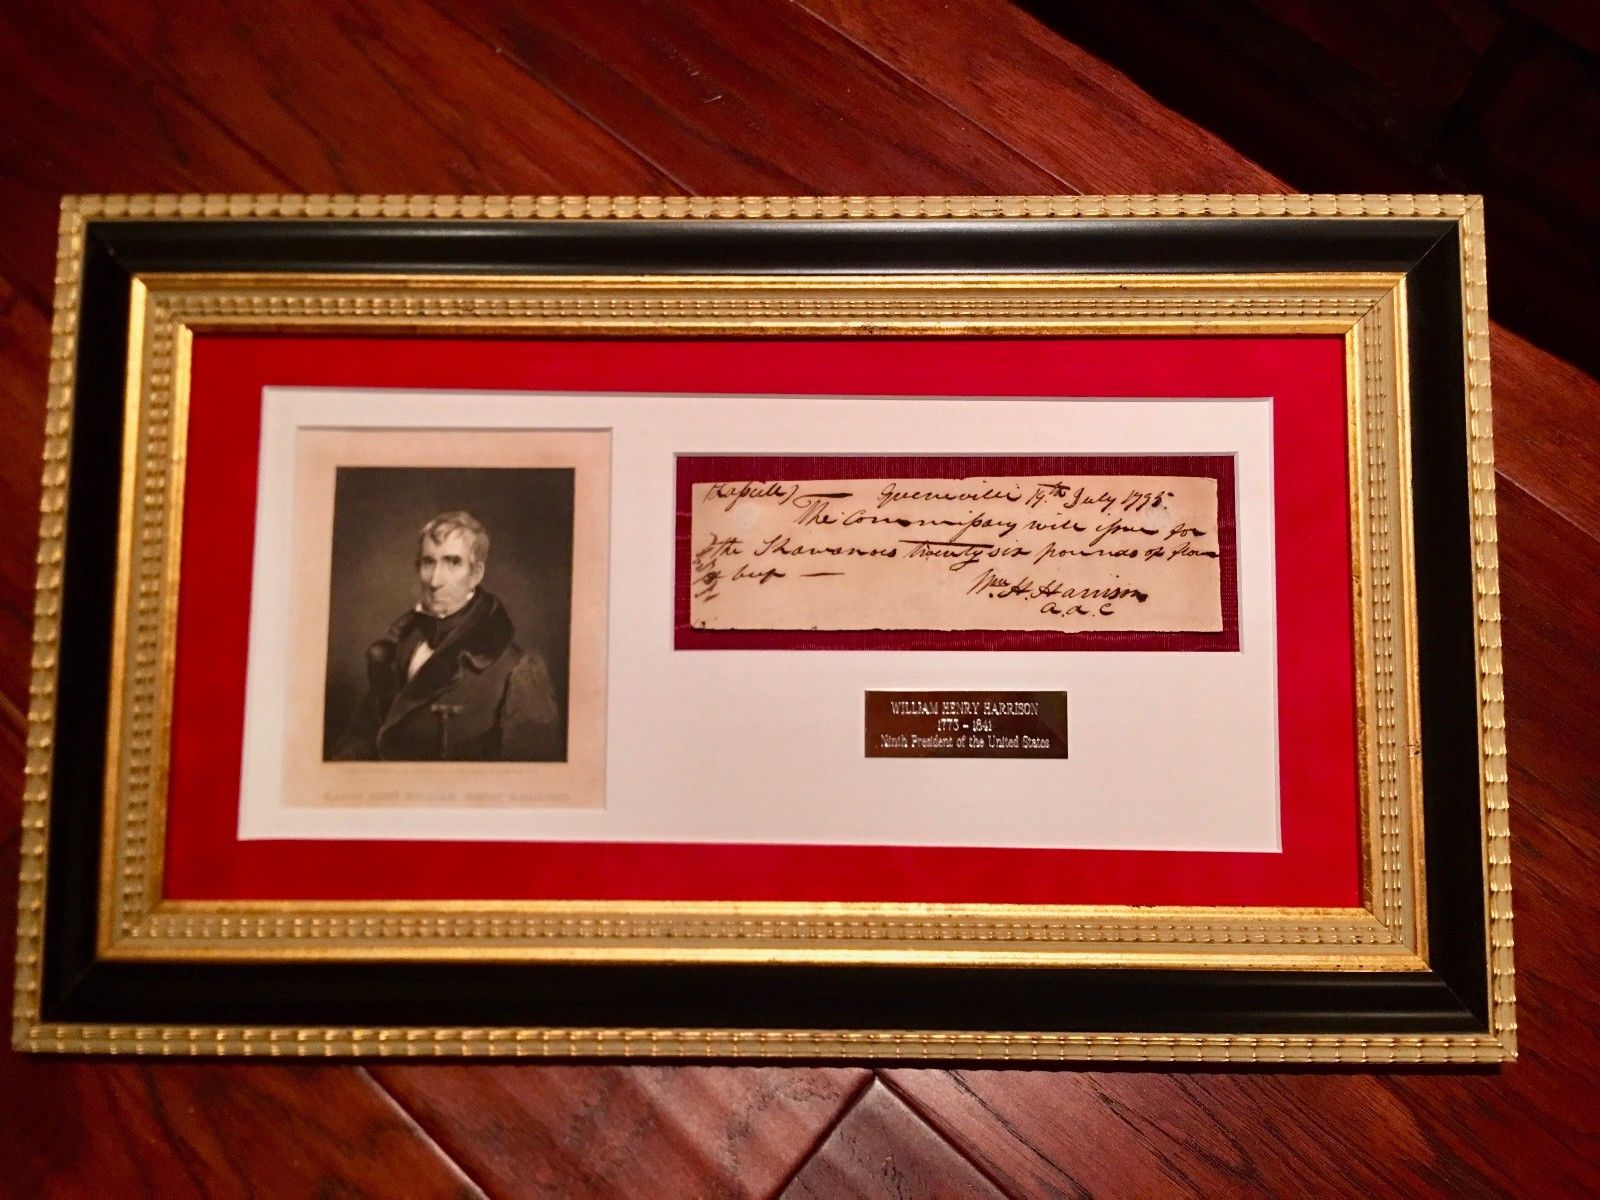 Greeneville 19th July 1795.
The Commissary will issue for
the Shawanoes twenty six pounds of flour
& beef —
Wm. H. Harrison
a. d. c
WILLIAM HENRY HARRISON
1773 - 1841
Ninth President of the United States